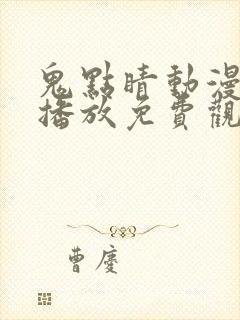 鬼點晴動漫
播放免費觀
曹慶